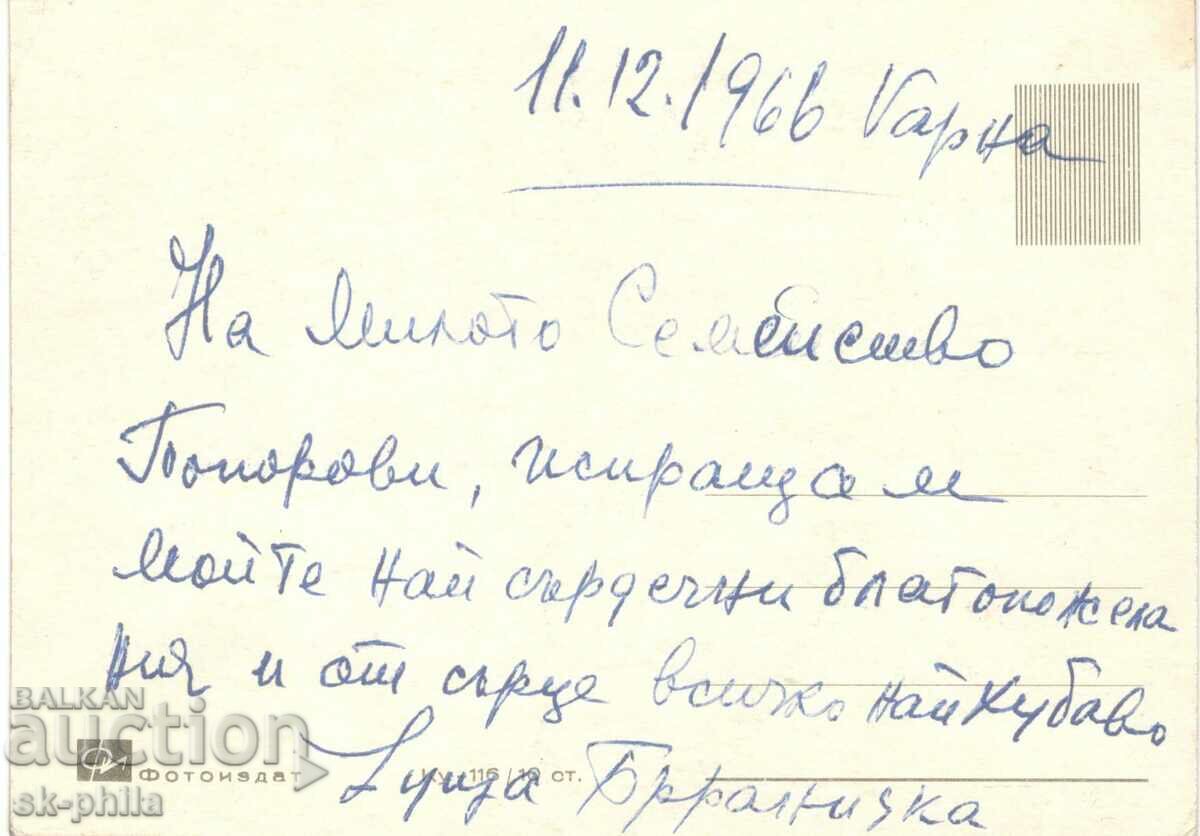 11.12.1966 Варна
На милото Семейство
Попорови, испращам
мойте най сърдечни благопожела
ния и от сърце всичко най хубаво
BALKAN
auction
Фотоиздат 116/10 ст.
sk-phila